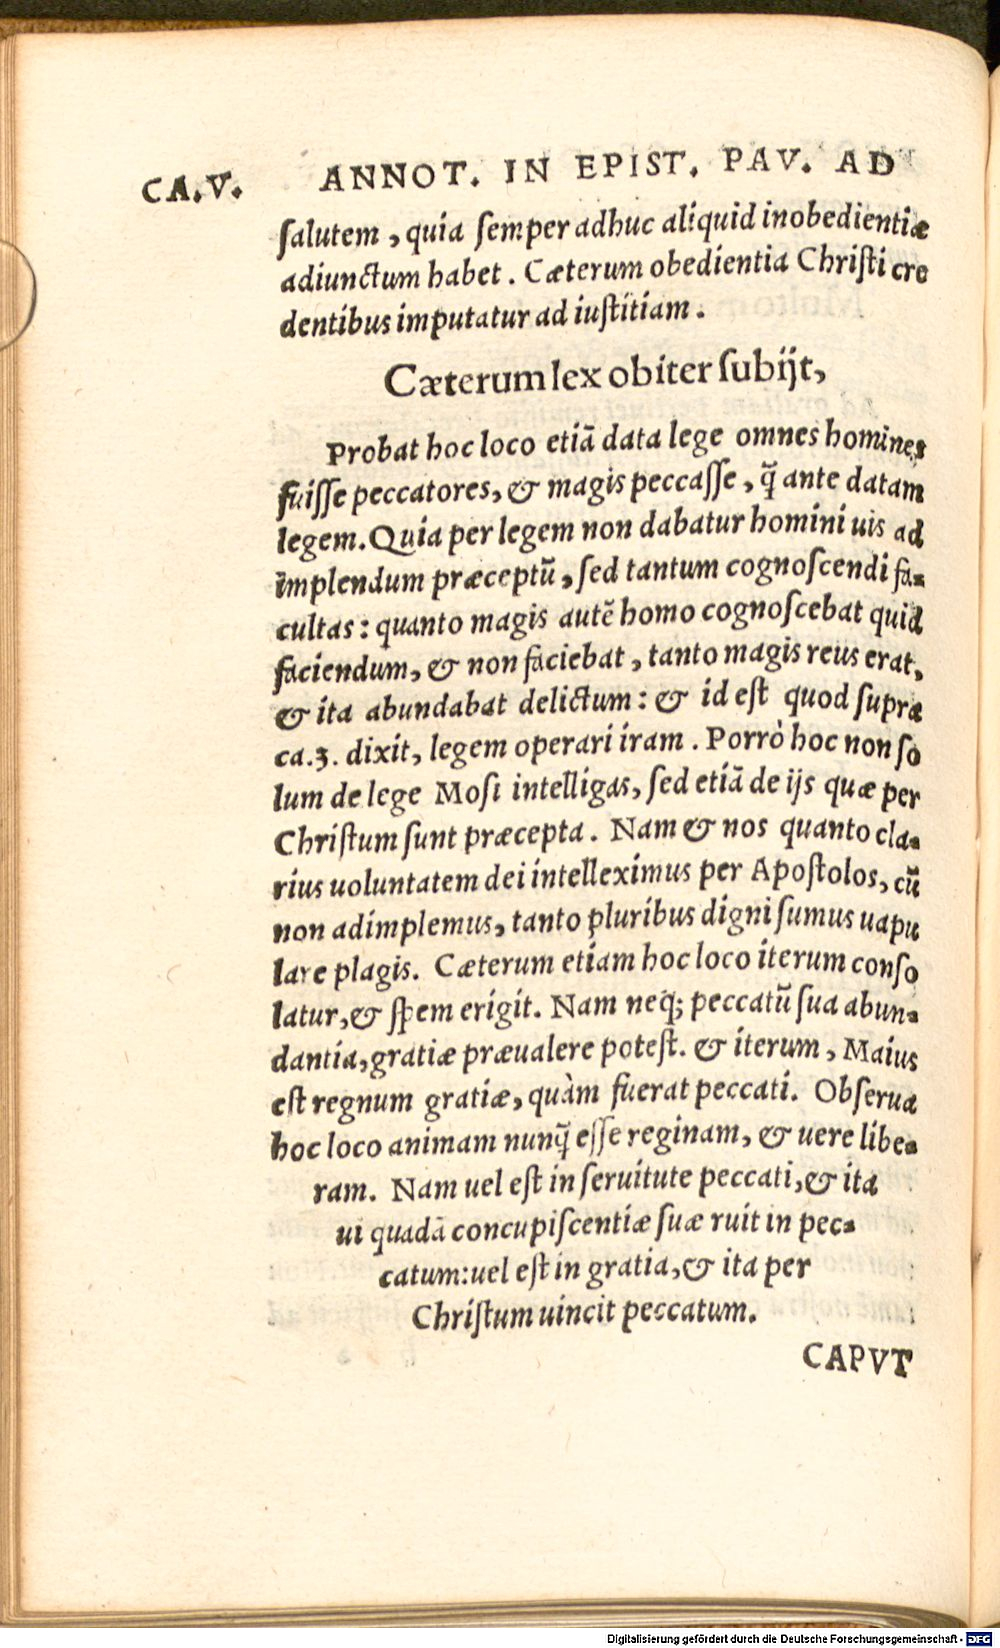 CA.V. ANNOT. IN EPIST. PAV. AD
ſalutem, quia ſemper adhuc aliquid inobedientiæ
adiunctum habet. Cæterum obedientia Chriſti cre
dentibus imputatur ad iuſtitiam.
Cæterum lex obiter ſubijt,
Probat hoc loco etiā data lege omnes homines
fuiſſe peccatores, & magis peccaſſe, q̃ ante datam
legem. Quia per legem non dabatur homini uis ad
implendum præceptū, ſed tantum cognoſcendi fa-
cultas: quanto magis autē homo cognoſcebat quid
faciendum, & non faciebat, tanto magis reus erat,
& ita abundabat delictum: & id eſt quod ſupra
ca.3. dixit, legem operari iram. Porrò hoc non ſo
lum de lege Moſi intelligas, ſed etiā de ijs quæ per
Chriſtum ſunt præcepta. Nam & nos quanto cla-
rius uoluntatem dei intelleximus per Apoſtolos, cū
non adimplemus, tanto pluribus digni ſumus uapu
lare plagis. Cæterum etiam hoc loco iterum conſo
latur, & ſpem erigit. Nam neq; peccatū ſua abun-
dantia, gratiæ præualere poteſt. & iterum, Maius
eſt regnum gratiæ, quàm fuerat peccati. Obſerua
hoc loco animam nunq̃ eſſe reginam, & uere libe-
ram. Nam uel eſt in ſeruitute peccati, & ita
ui quadā concupiſcentiæ ſuæ ruit in pec-
catum: uel eſt in gratia, & ita per
Chriſtum uincit peccatum.
CAPVT
Digitalisierung gefördert durch die Deutsche Forschungsgemeinschaft - DFG